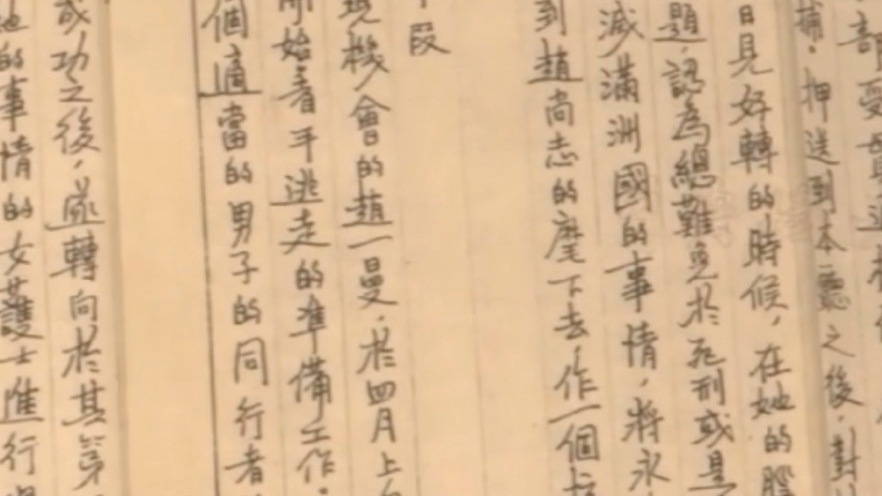 部受
捕，押送到本廳之後，對
日見好轉的時候，在她的
題，認為總難免於死刑或是
滅滿洲國的事情，將永
到趙尚志的麾下去，作一個
段
現機會的趙一曼，於四月上
開始着手逃走的準備工作。
個適當的男子的同行者
成功之後，遂轉向於其第
她的事情的女護士進行